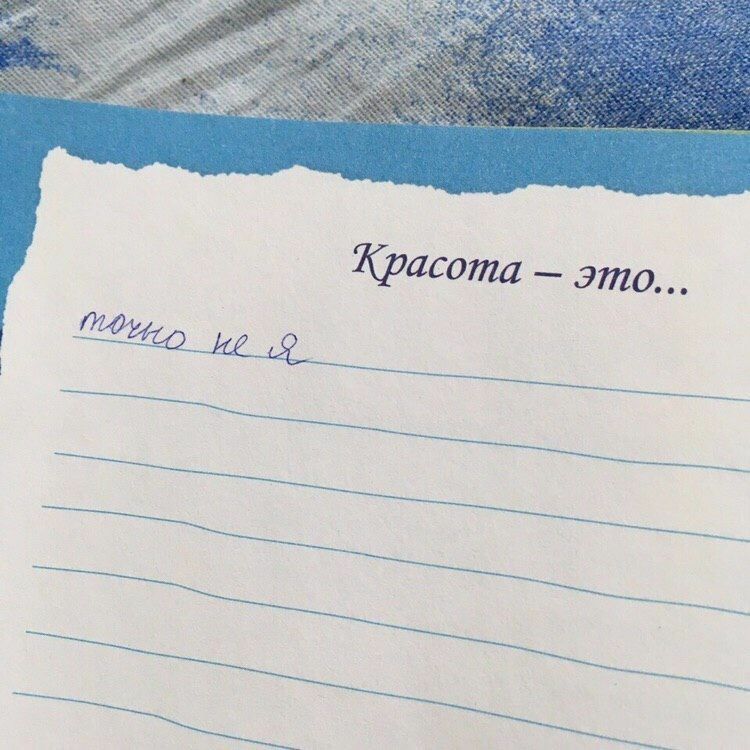 Красота – это...
точно не я